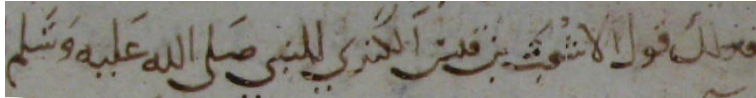 فذلك قول الاشعث بن قيس الكندي للنبي صلى الله عليه وسلم